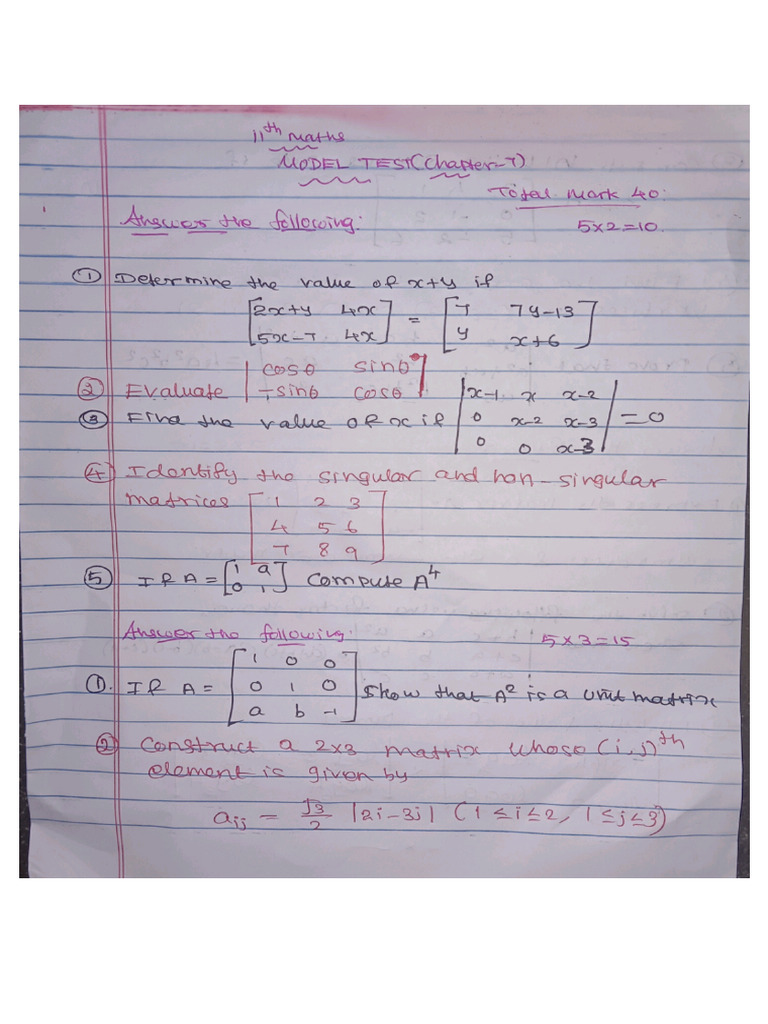 11th maths
MODEL TEST(Chapter-7)
Total mark 40:
Answer the following:
5x2=10.
① Determine the value of x+y if
[2x+y 4x] = [7 7y-13]
[5x-7 4x] [y x+6]
② Evaluate |cosθ sinθ|
|-sinθ cosθ|
③ Find the value of x if |x-1 x x-2|
|0 x-2 x-3| =0
|0 0 x-3|
④ Identify the singular and non-singular
matrices [1 2 3]
[4 5 6]
[7 8 9]
⑤ If A = [1 a] Compute A⁴
[0 1]
Answer the following:
5x3=15
①. If A = [1 0 0]
[0 1 0] show that A² is a unit matrix
[a b -1]
② Construct a 2x3 matrix whose (i,j)th
element is given by
aij = √3/2 |2i-3j| (1≤i≤2, 1≤j≤3)